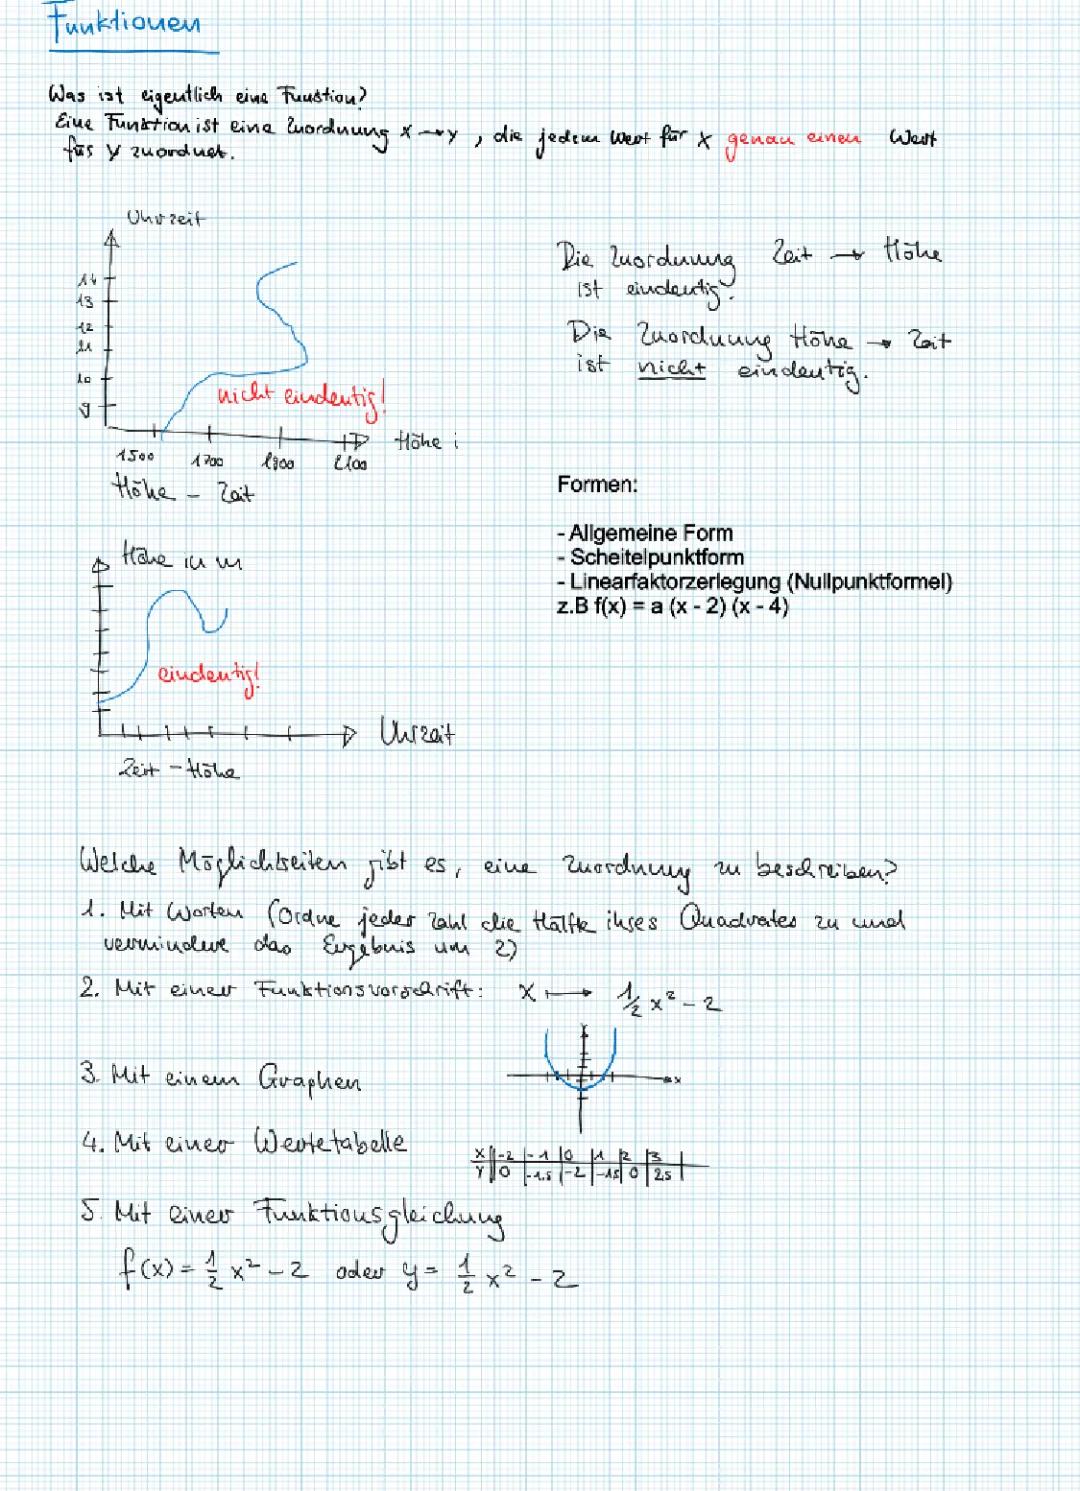 Funktionen
Was ist eigentlich eine Funktion?
Eine Funktion ist eine Zuordnung x → y, die jedem Wert für x genau einen Wert
für y zuordnet.
Uhrzeit
14
13
12
11
10
9
nicht eindeutig!
1500 1700 1900 2100
Höhe i
Höhe - Zeit
Die Zuordnung Zeit → Höhe
ist eindeutig.
Die Zuordnung Höhe → Zeit
ist nicht eindeutig.
Formen:
- Allgemeine Form
- Scheitelpunktform
- Linearfaktorzerlegung (Nullpunktformel)
z.B f(x) = a (x - 2) (x - 4)
Höhe in m
eindeutig!
Uhrzeit
Zeit - Höhe
Welche Möglichkeiten gibt es, eine Zuordnung zu beschreiben?
1. Mit Worten (Ordne jeder Zahl die Hälfte ihres Quadrates zu und
vermindere das Ergebnis um 2)
2. Mit einer Funktionsvorschrift: x ↦ 1/2 x² - 2
3. Mit einem Graphen
x
4. Mit einer Wertetabelle
x | -2 | -1 | 0 | 1 | 2 | 3
y | 0 | -1.5 | -2 | -1.5 | 0 | 2.5
5. Mit einer Funktionsgleichung
f(x) = 1/2 x² - 2 oder y = 1/2 x² - 2